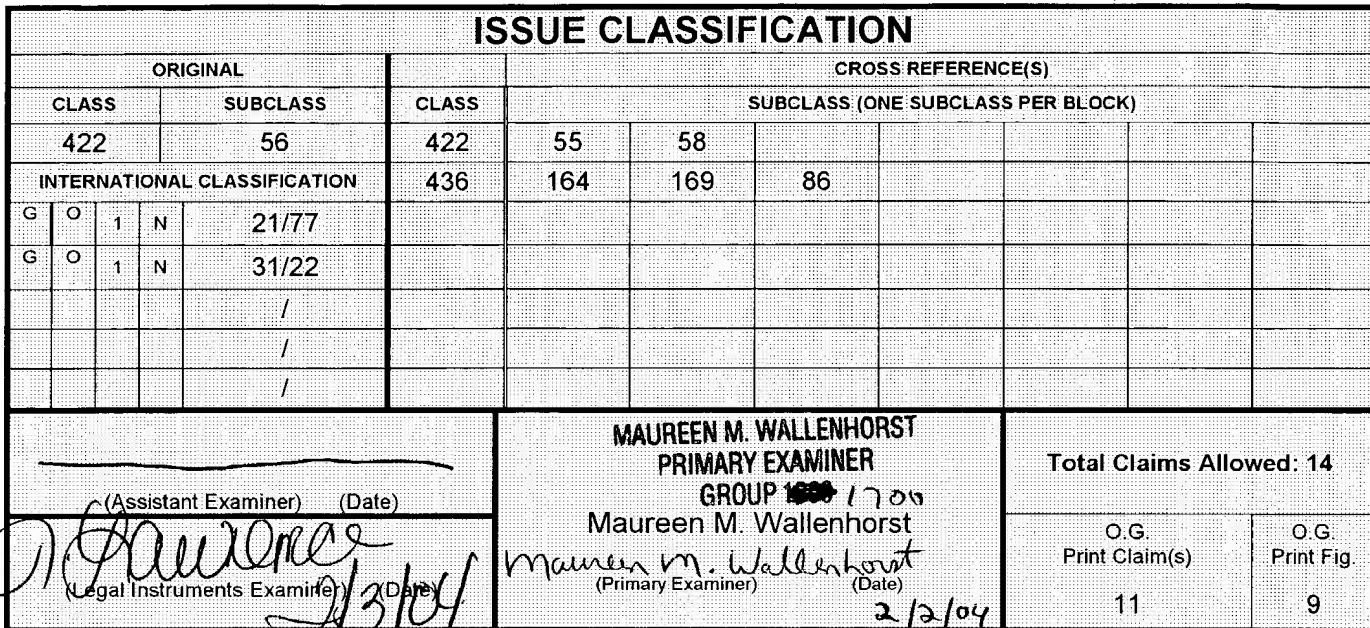 ISSUE CLASSIFICATION
ORIGINAL CROSS REFERENCE(S)
CLASS SUBCLASS CLASS SUBCLASS (ONE SUBCLASS PER BLOCK)
422 56 422 55 58
INTERNATIONAL CLASSIFICATION 436 164 169 86
G O 1 N 21/77
G O 1 N 31/22
/
/
/
(Assistant Examiner) (Date)
Lawrence
(Legal Instruments Examiner) (Date)
2/3/04
MAUREEN M. WALLENHORST
PRIMARY EXAMINER
GROUP 1700
Maureen M. Wallenhorst
Maureen M. Wallenhorst
(Primary Examiner) (Date)
2/2/04
Total Claims Allowed: 14
O.G.
Print Claim(s)
11
O.G.
Print Fig.
9